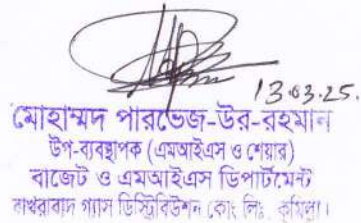 13.03.25.
মোহাম্মদ পারভেজ-উর-রহমান
উপ-ব্যবস্থাপক (এমআইএস ও শেয়ার)
বাজেট ও এমআইএস ডিপার্টমেন্ট
বাখরাবাদ গ্যাস ডিস্ট্রিবিউশন কোং লিঃ, কুমিল্লা।